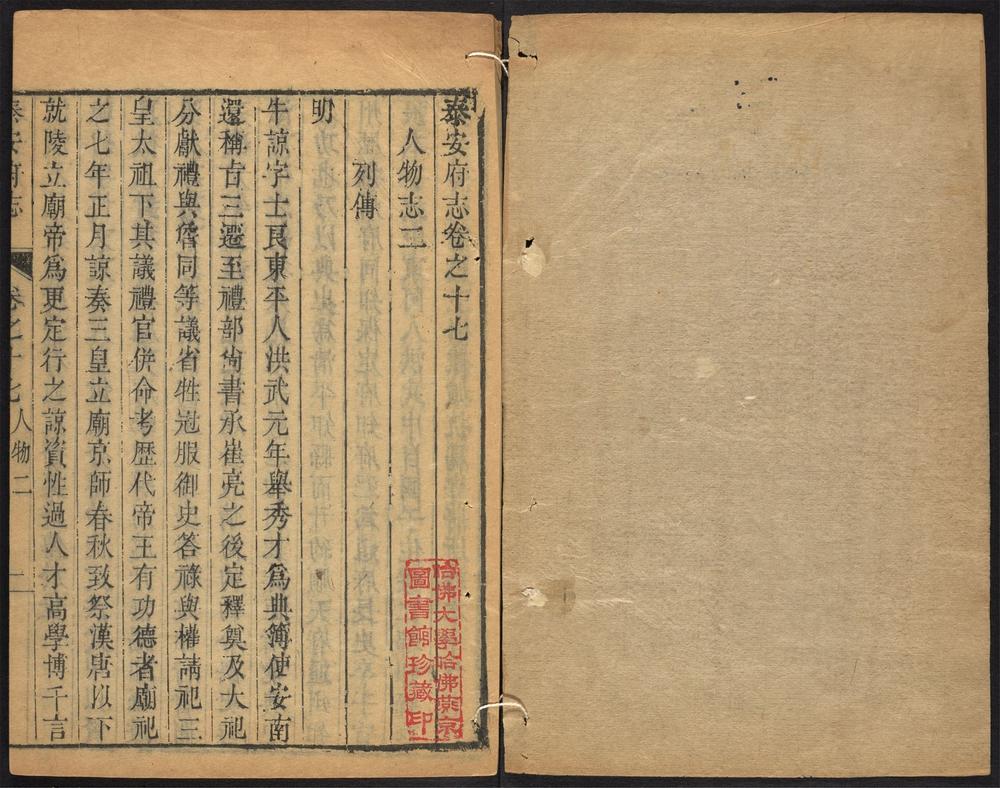 泰安府志卷之十七
人物志二
列傳
明
牛諒字士良東平人洪武元年舉秀才爲典簿使安南
還稱旨三遷至禮部尙書承崔亮之後定釋奠及大祀
分獻禮與詹同等議省牲冠服御史答祿與權請祀三
皇太祖下其議禮官併命考歷代帝王有功德者廟祀
之七年正月諒奏三皇立廟京師春秋致祭漢唐以下
就陵立廟帝爲更定行之諒資性過人才高學博千言
泰安府志
卷之十七人物二
一
哈佛大學哈佛燕京
圖書館珍藏印